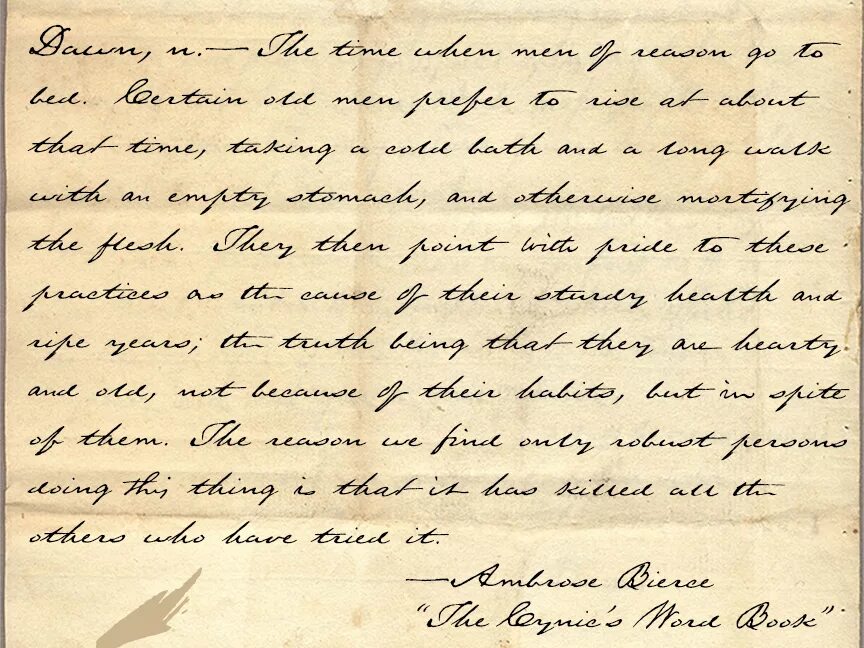 Dawn, n.— The time when men of reason go to
bed. Certain old men prefer to rise at about
that time, taking a cold bath and a long walk
with an empty stomach, and otherwise mortifying
the flesh. They then point with pride to these
practices as the cause of their sturdy health and
ripe years; the truth being that they are hearty
and old, not because of their habits, but in spite
of them. The reason we find only robust persons
doing this thing is that it has killed all the
others who have tried it.
—Ambrose Bierce
"The Cynic's Word Book"